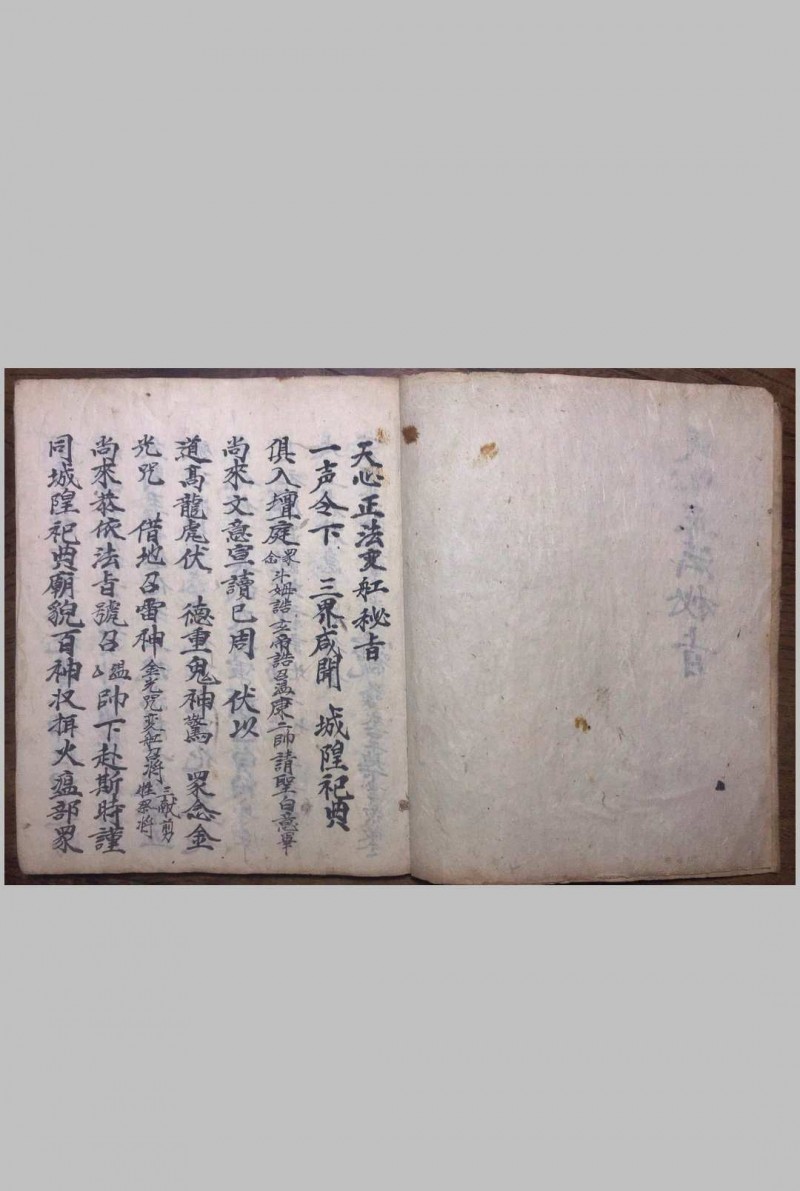 天心正法变舡秘旨
一声令下　三界咸聞　城隍祀典
俱入壇庭衆念斗姆誥玄帝誥召温康二帥請聖白意畢
尚來文意宣讀已周　伏以
道髙龍虎伏　德重鬼神驚　衆念金
光咒　借地召雷神金光咒变舡召將三献剪牲祭將
尚來恭依法旨號召　帥下赴斯時謹
同城隍祀典廟貌百神収　火瘟部衆